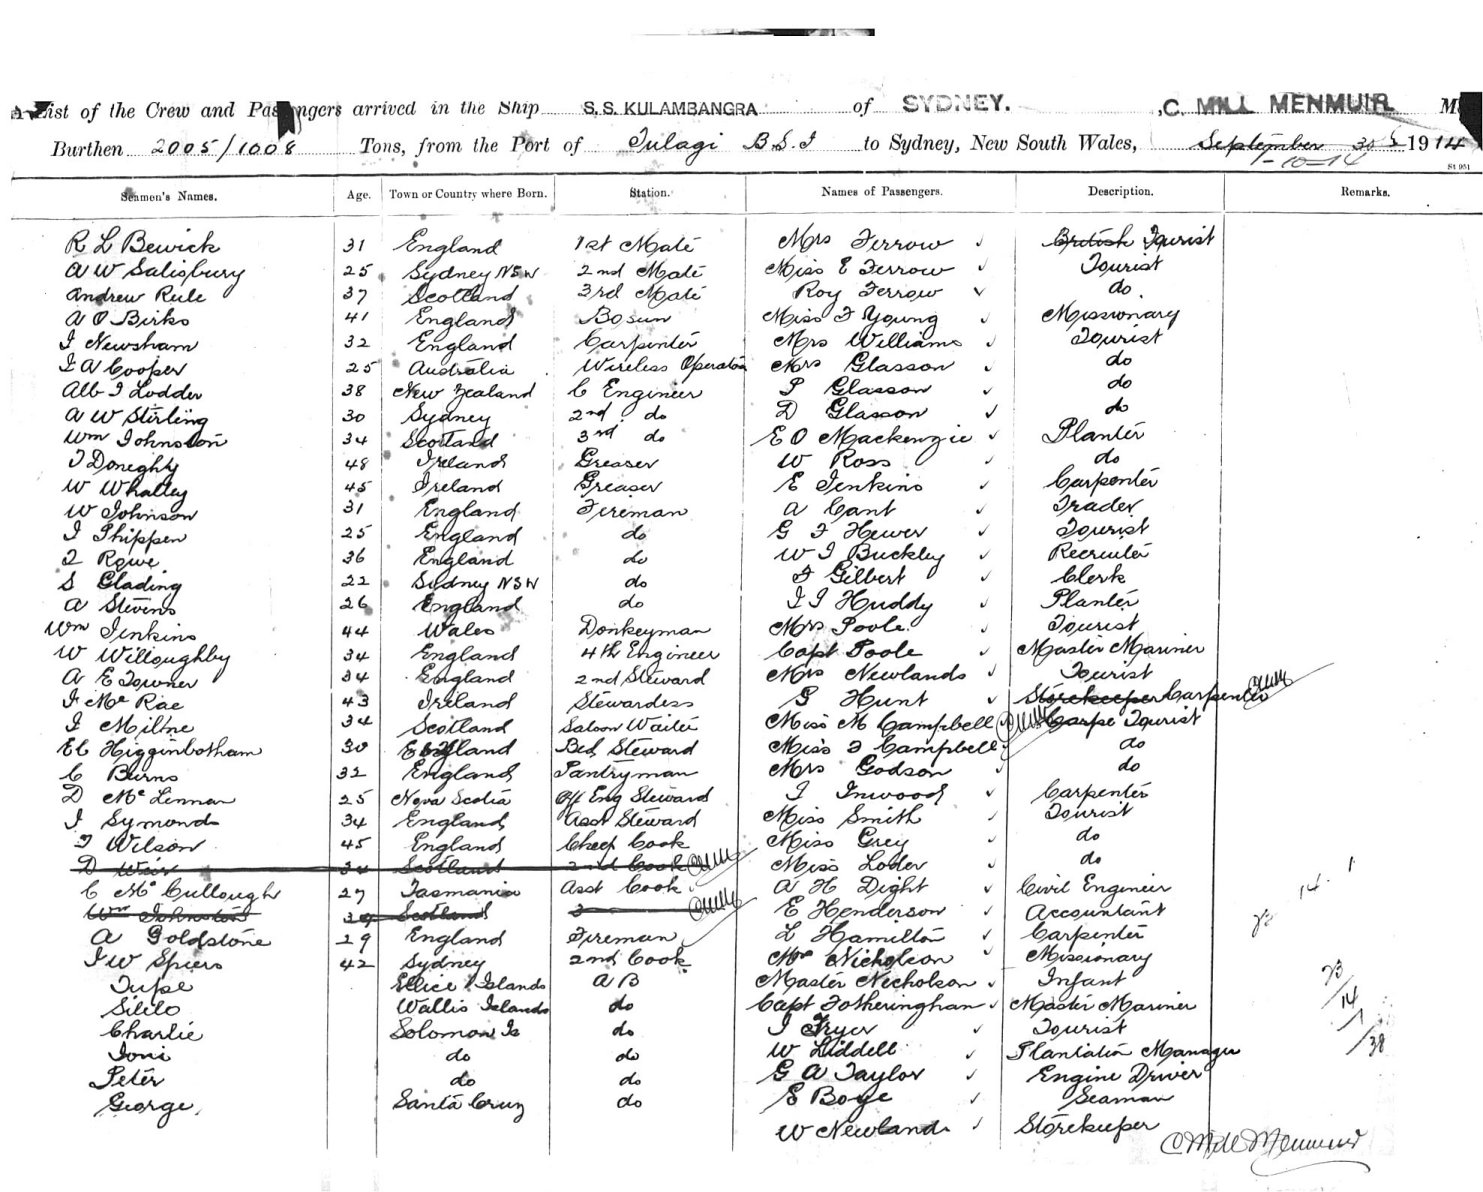 A List of the Crew and Passengers arrived in the Ship S.S. KULAMBANGRA of SYDNEY. ,C. MILL MENMUIR M
Burthen 2005/1008 Tons, from the Port of Tulagi B.S.I to Sydney, New South Wales, September 30 1914
1-10-14
St 951
Seamen's Names. Age. Town or Country where Born. Station. Names of Passengers. Description. Remarks.
R L Bewick 31 England 1st Mate Mrs Ferrow ✓ British Tourist
A W Salisbury 25 Sydney NSW 2nd Mate Miss E Ferrow ✓ Tourist
Andrew Reile 37 Scotland 3rd Mate Roy Ferrow ✓ do.
A O Birks 41 England Bosun Miss F Young ✓ Missionary
J Newsham 32 England Carpenter Mrs Williams ✓ Tourist
J A Cooper 25 Australia Wireless Operator Mrs Glasson ✓ do
Alb J Lodder 38 New Zealand C Engineer P Glasson ✓ do
A W Stirling 30 Sydney 2nd do D Glasson ✓ do
Wm Johnston 34 Scotland 3rd do E O Mackenzie ✓ Planter
J Doneghy 48 Ireland Greaser W Ross ✓ do
W Whalley 45 Ireland Greaser E Jenkins ✓ Carpenter
W Johnson 31 England Fireman A Cant ✓ Trader
J Phippen 25 England do G F Hewer ✓ Tourist
T Rowe 36 England do W J Buckley ✓ Recruiter
S Glading 22 Sydney NSW do F Gilbert ✓ Clerk
A Stevens 26 England do J J Huddy ✓ Planter
Wm Jenkins 44 Wales Donkeyman Mrs Poole ✓ Tourist
W Willoughby 34 England 4th Engineer Capt Poole ✓ Master Mariner
A E Towner 34 England 2nd Steward Mrs Newlands ✓ Tourist
J Mc Rae 43 Ireland Stewardess G Hunt ✓ Storekeeper Carpenter
J Milne 34 Scotland Saloon Waiter Miss M Campbell Carpe Tourist
E C Higginbotham 30 England Bed Steward Miss F Campbell do
C Burns 32 England Pantryman Mrs Godson ✓ do
D Mc Lennan 25 Nova Scotia Off Eng Steward J Inwood ✓ Carpenter
J Symonds 34 England Asst Steward Miss Smith ✓ Tourist
T Wilson 45 England Chief Cook Miss Grey ✓ do
D Weir 34 Scotland 2nd Cook Miss Loder ✓ do
C Mc Cullough 27 Tasmania Asst Cook A H Dight ✓ Civil Engineer
Wm Johnston 34 Scotland 3 E Henderson ✓ Accountant
A Goldstone 29 England Fireman L Hamilton ✓ Carpenter
J W Spiers 42 Sydney 2nd Cook Mrs Nicholson ✓ Missionary
Tupe Ellice Islands A B Master Nicholson ✓ Infant
Sililo Wallis Islands do Capt Fotheringham ✓ Master Mariner
Charlie Solomon Is do J Fryer ✓ Tourist
Toni do do W Liddell ✓ Plantation Manager
Peter do do G A Taylor ✓ Engine Driver
George, Santa Cruz do E Boye ✓ Seaman
W Newlands ✓ Storekeeper
C Mill Menmuir